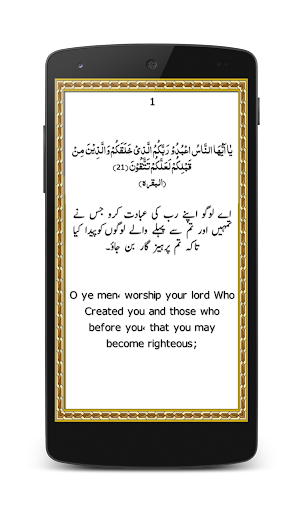 1
يٰاَيُّهَا النَّاسُ اعْبُدُوْ رَبَّكُمُ الَّذِىْ خَلَقَكُمْ وَالَّذِيْنَ مِنْ
قَبْلِكُمْ لَعَلَّكُمْ تَتَّقُوْنَ (21)
(البقرة)
اے لوگو اپنے رب کی عبادت کرو جس نے
تمہیں اور تم سے پہلے والے لوگوں کو پیدا کیا
تاکہ تم پرہیز گار بن جاؤ۔
O ye men، worship your lord Who
Created you and those who
before you، that you may
become righteous;